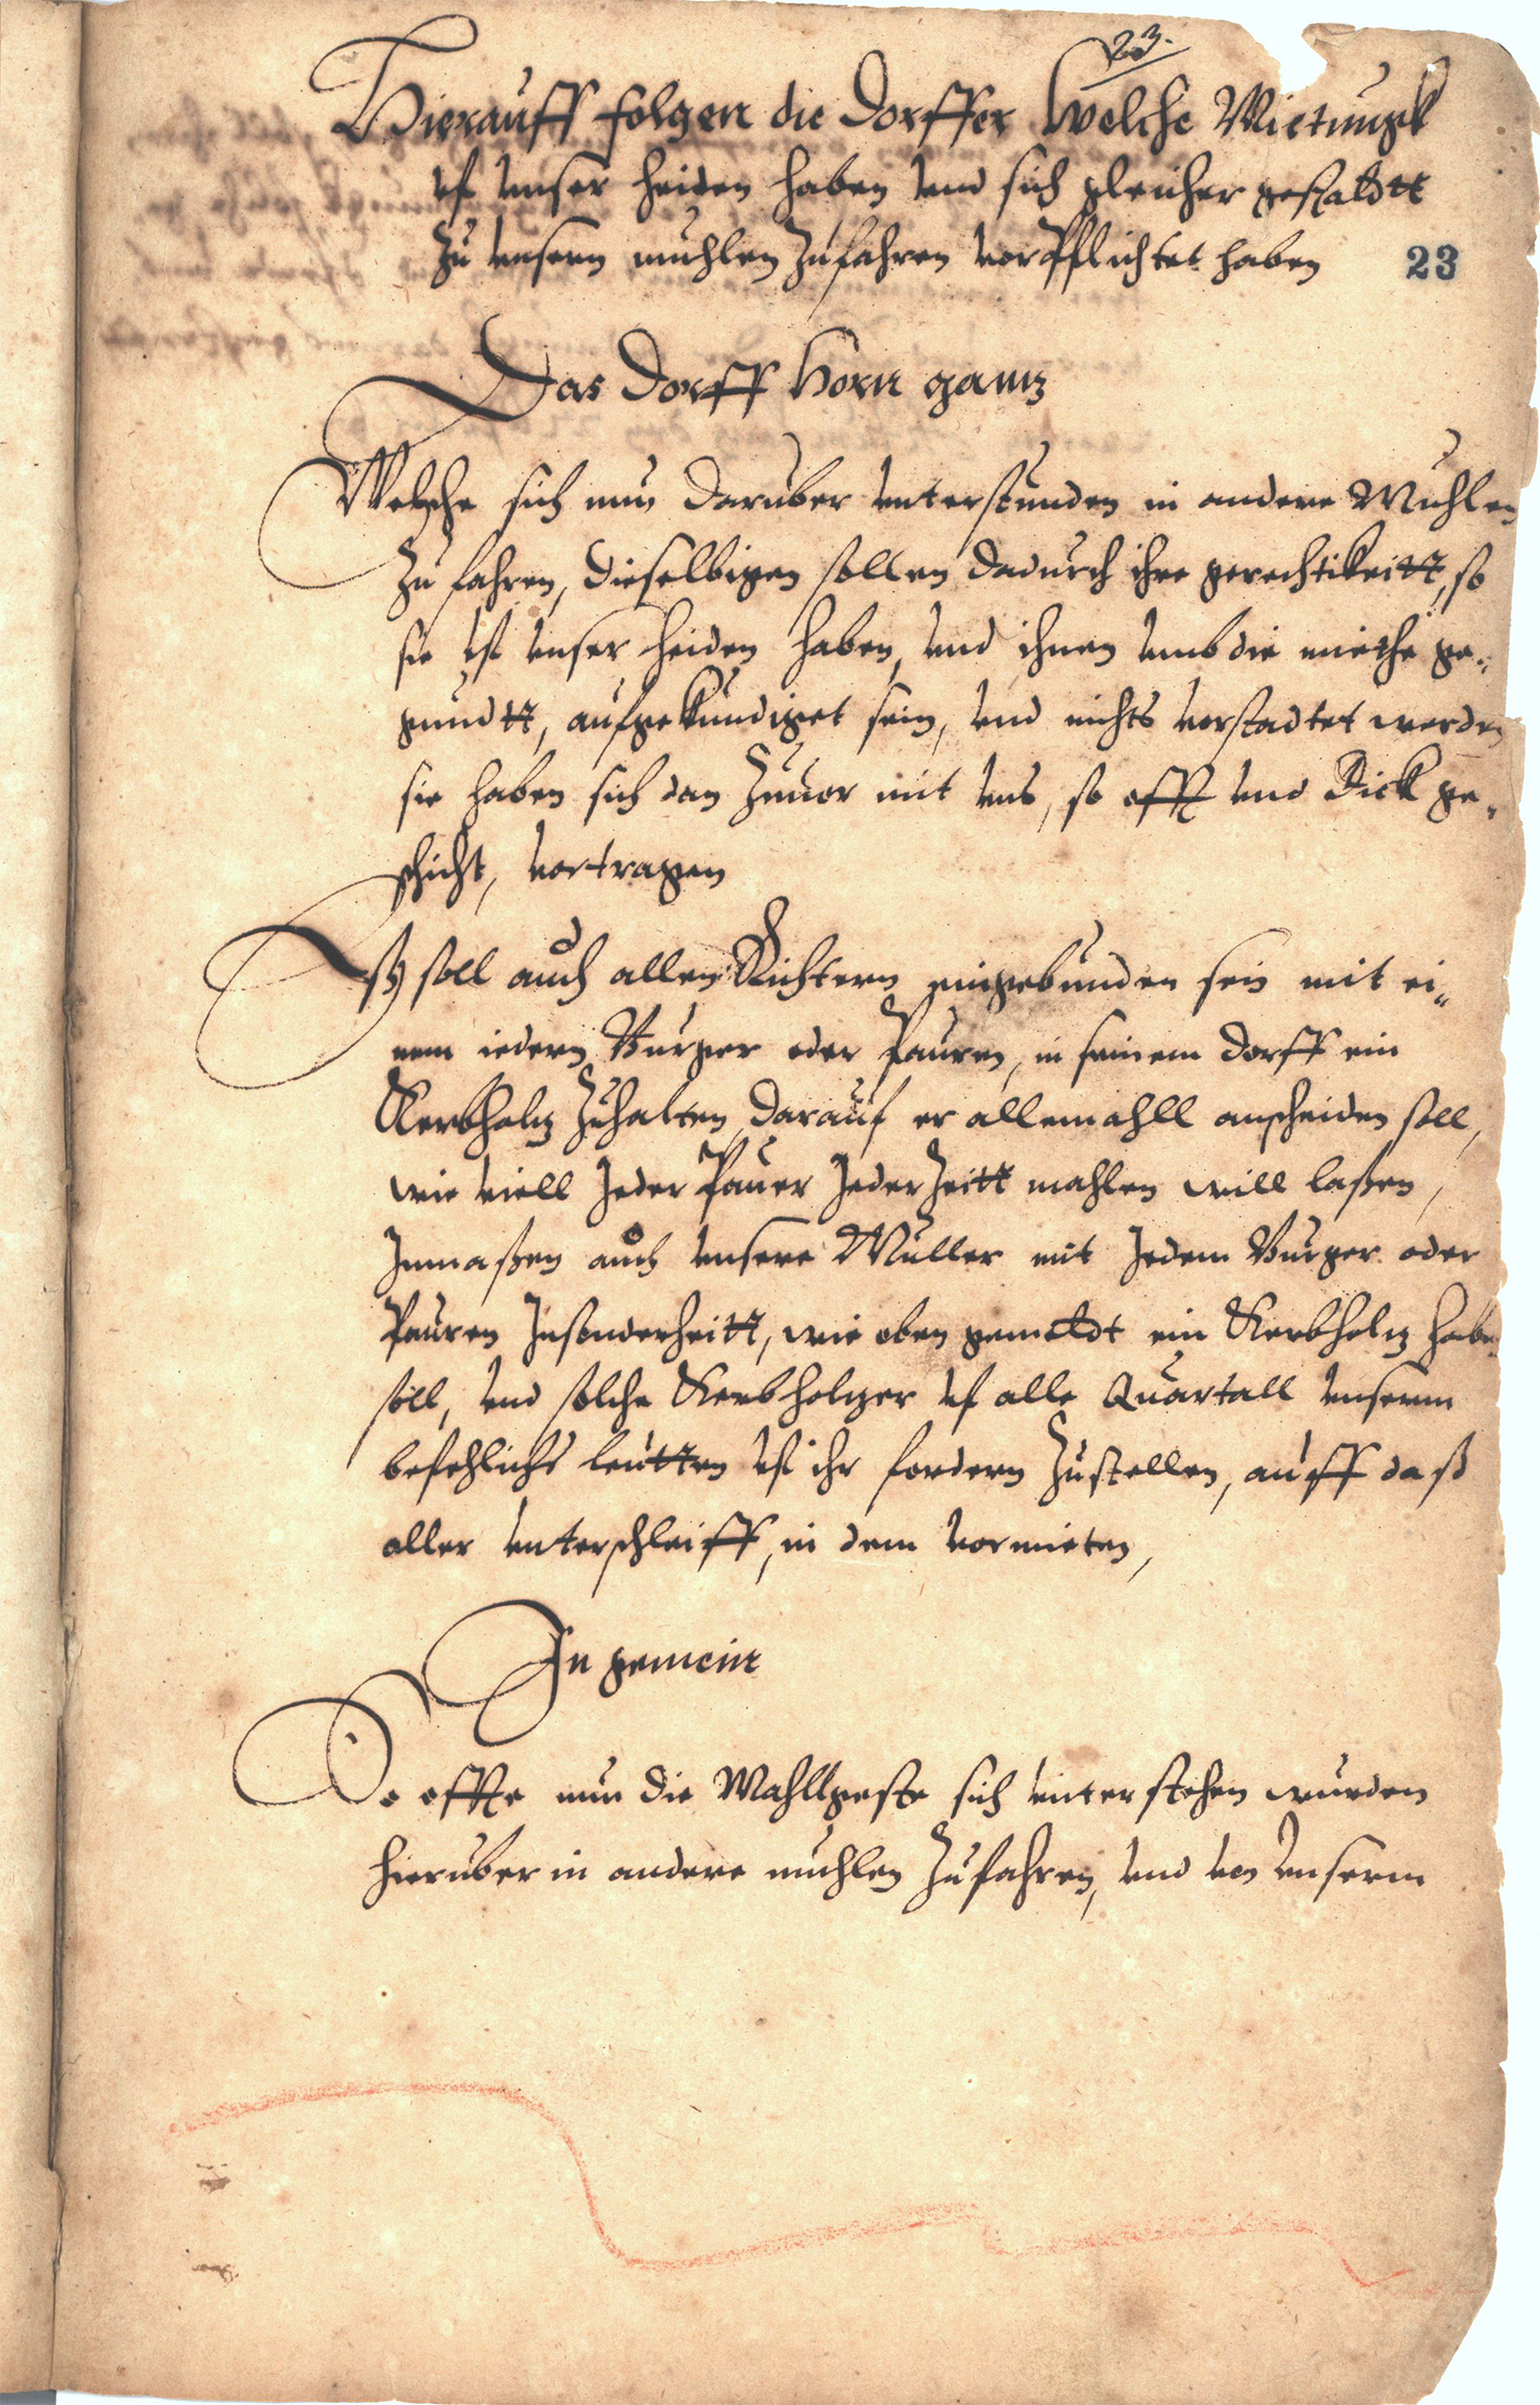 23.
Hierauff folgen die Dorffer Welche Mietungk
vf vnser heiden haben vnd sich gleicher gestaldtt
zu vnsern muhlen zufahren vorpflichtet haben
23
Das Dorff Horn gantz
Welche sich nun daruber vnterstunden in andere Muhlen
zu fahren, dieselbigen sollen dadurch ihre gerechtikeitt, so
sie vf vnser heiden haben, vnd ihnen vmb die miethe ge-
gundtt, aufgekundiget sein, vnd nichts vorstadtet werden
sie haben sich dan zuuor mit vns, so offt vnd Dick ge-
schicht, vortragen
Eß soll auch allen Richtern eingebunden sein mit ei-
nem iedern Burger oder Pauren, in seinem Dorff ein
Kerbholtz zuhalten, darauf er allemahll anscheiden soll,
wie viell Jeder Pauer Jeder Zeitt mahlen will laßen,
Inmaßen auch vnsere Muller mit Jedem Burger oder
Pauren Insonderheitt, wie oben gemeldt ein Kerbholtz habe
soll, vnd solche Kerbholtzer vf alle Quartall vnserm
befehlichs leutten vf ihr fordern zustellen, auff daß
aller vnterschleiff, in dem vormieten,
In gemein
So offte nun die Mahllgeste sich vnterstehen wurden
hieruber in andere muhlen zufahren, vnd von vnserm